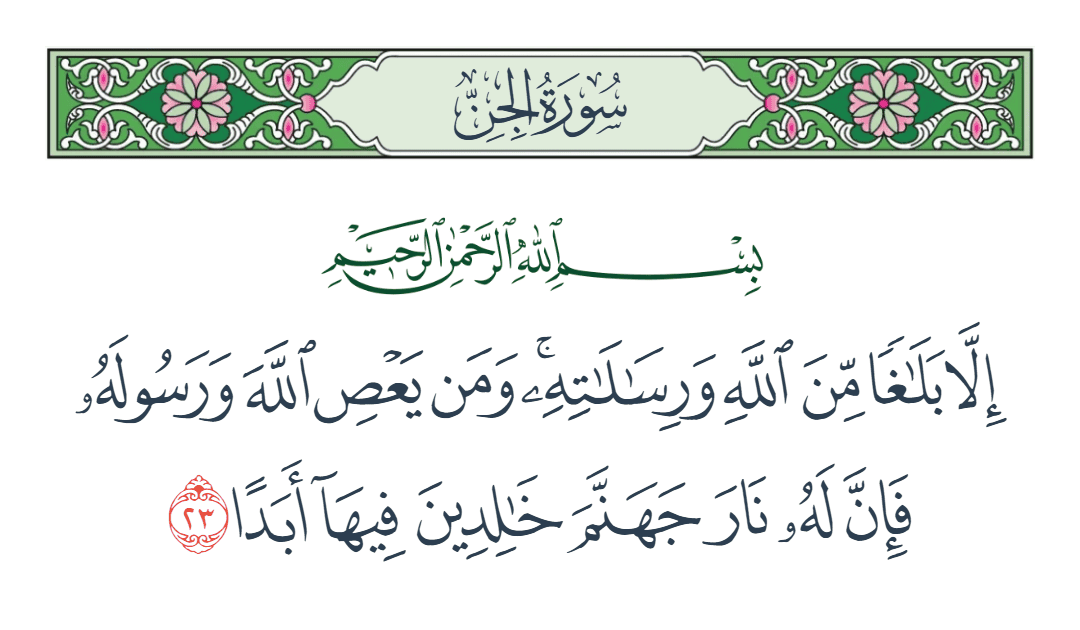 سُورَةُ الجِنِّ
بِسْمِ ٱللَّهِ ٱلرَّحْمَٰنِ ٱلرَّحِيمِ
إِلَّا بَلَٰغًا مِّنَ ٱللَّهِ وَرِسَٰلَٰتِهِۦۚ وَمَن يَعْصِ ٱللَّهَ وَرَسُولَهُۥ
فَإِنَّ لَهُۥ نَارَ جَهَنَّمَ خَٰلِدِينَ فِيهَآ أَبَدًا ٢٣